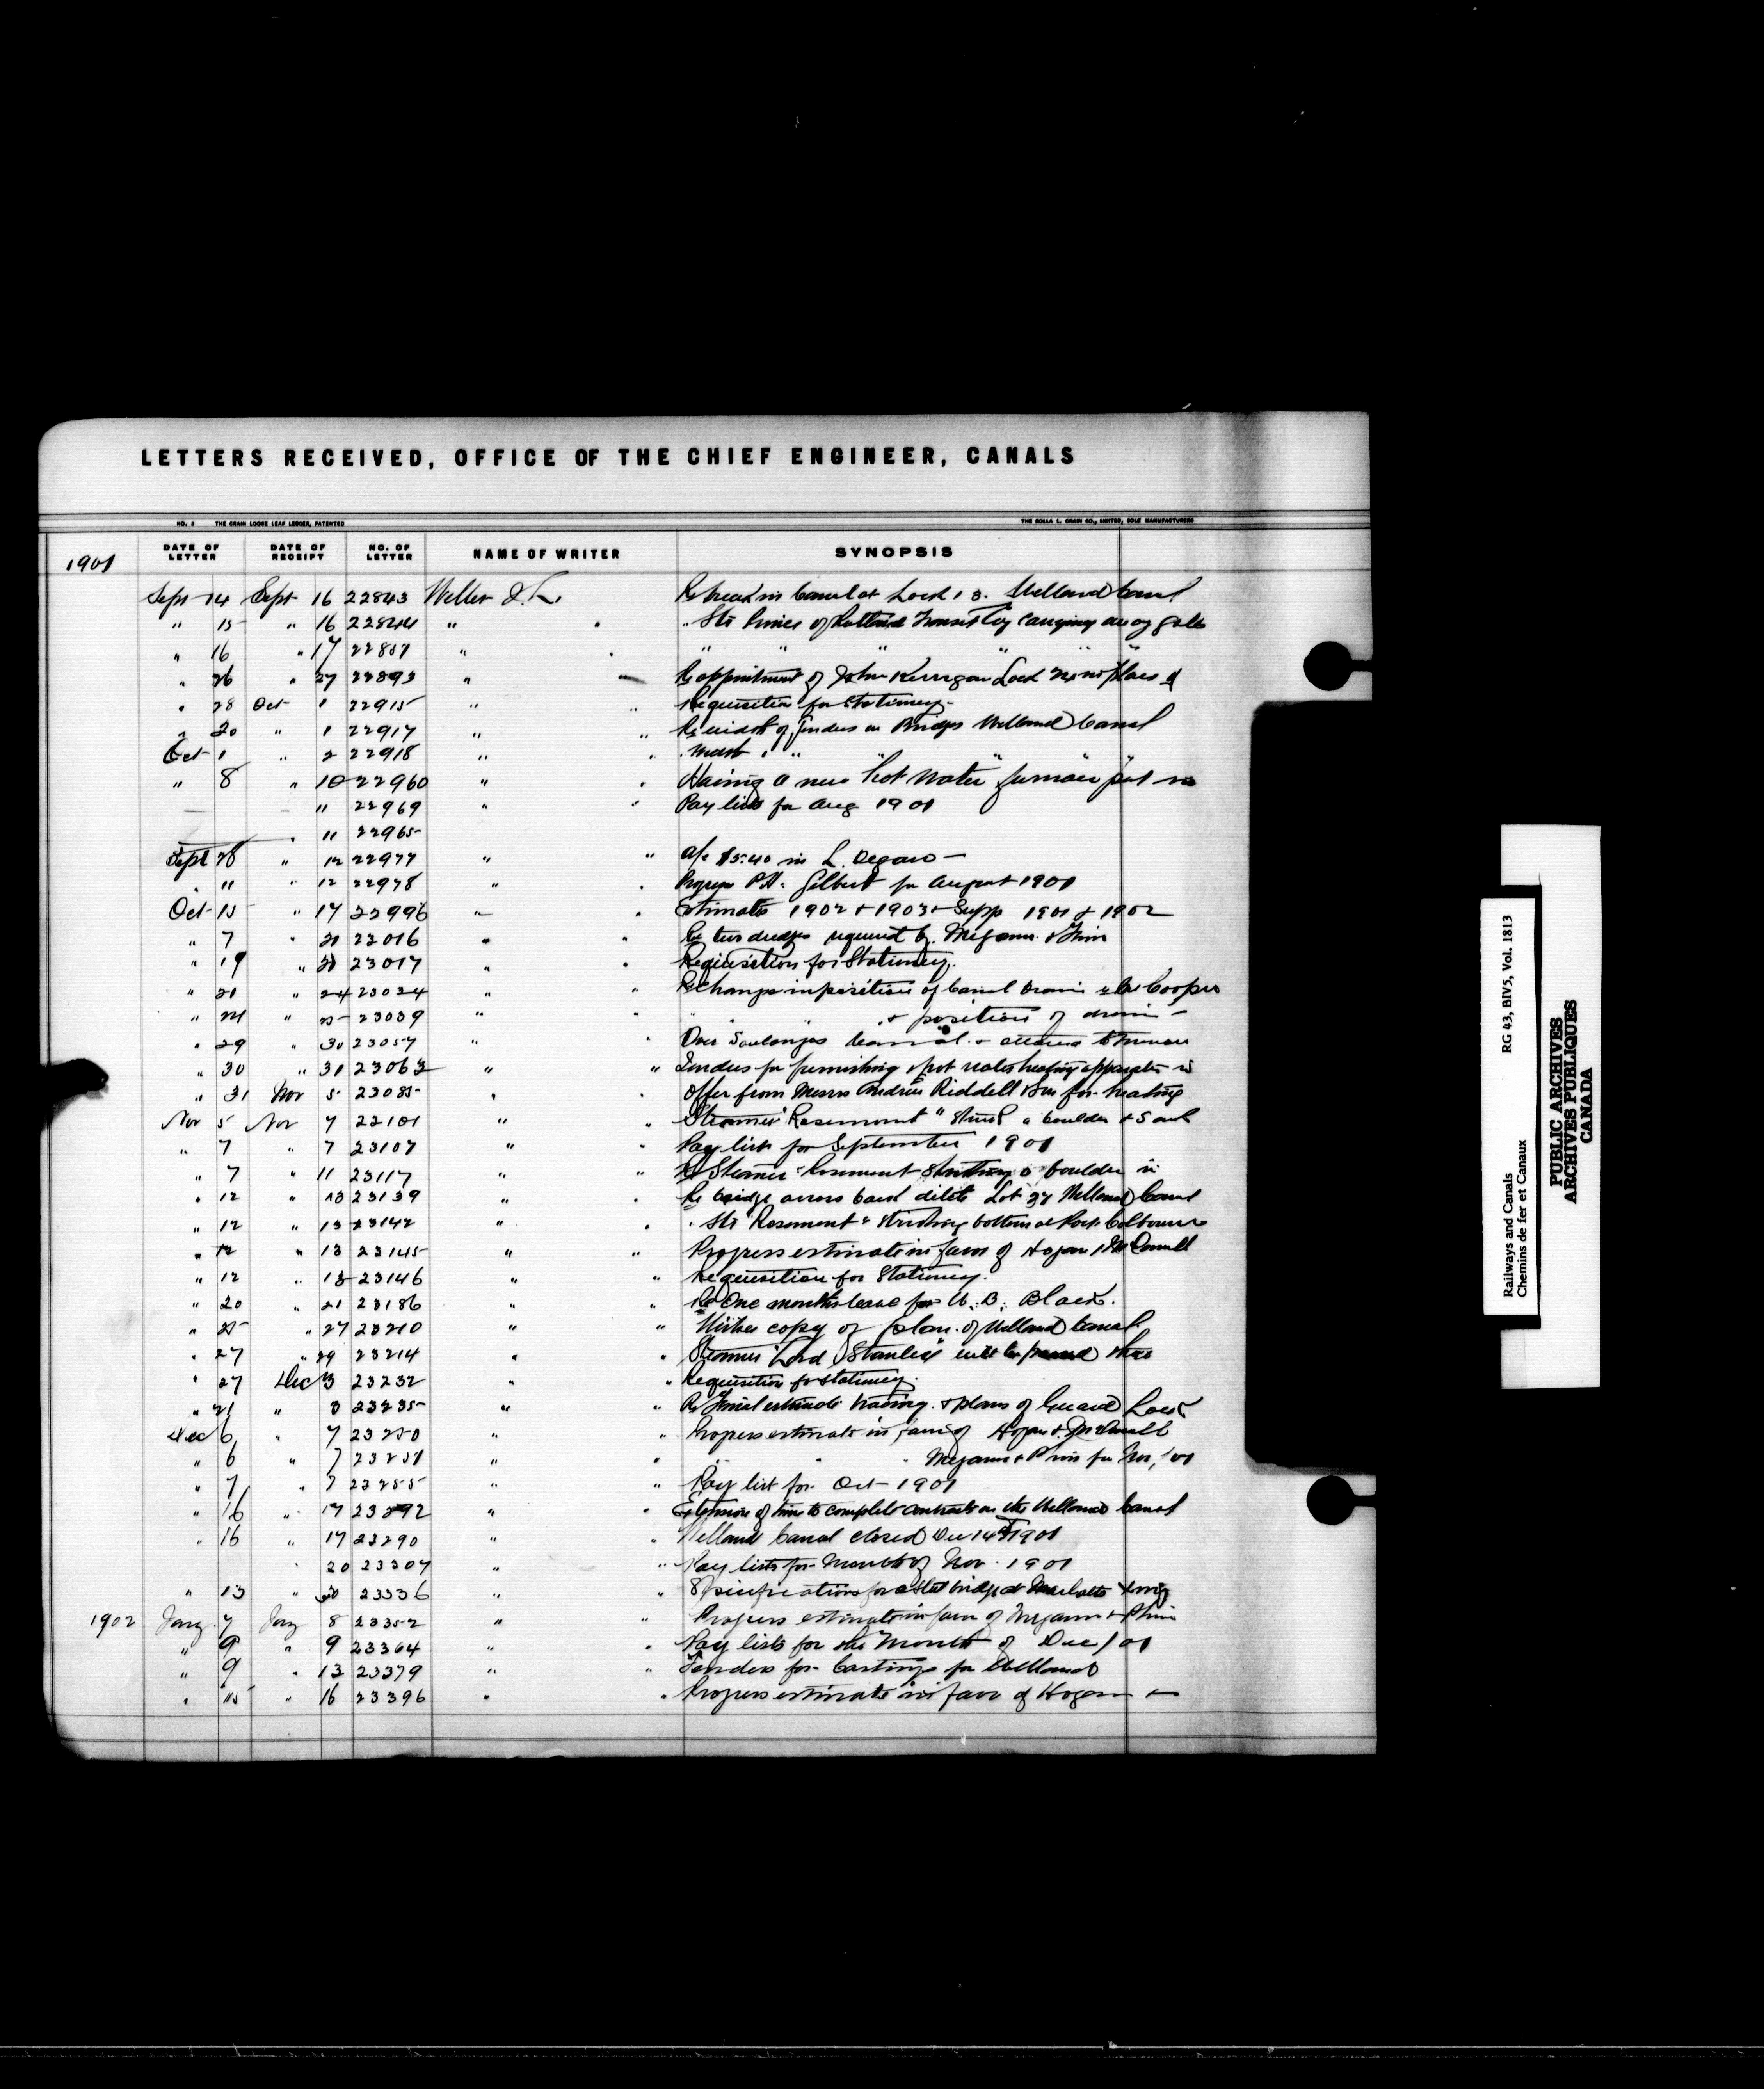 LETTERS RECEIVED, OFFICE OF THE CHIEF ENGINEER, CANALS
NO. 5 THE CRAIN LOOSE LEAF LEDGER, PATENTED THE ROLLA L. CRAIN CO., LIMITED, SOLE MANUFACTURERS
1901 DATE OF LETTER DATE OF RECEIPT NO. OF LETTER NAME OF WRITER SYNOPSIS
Sept 14 Sept 16 22843 Weller J.L. Re break in Canal at Lock 13. Welland Canal
" 15 " 16 22844 " " " Str of Rutland Transit Coy carrying away gate
" 16 " 17 22857 " " " " " "
" 26 " 27 22893 " Re appointment of John Kerrigan Lock in place of
" 28 Oct 1 22915 " " Requisition for Stationery
" 30 " 1 22917 " " Re of Tenders on Bridges Welland Canal
Oct 1 " 2 22918 " " " "
" 8 " 10 22960 " " Having a new hot water furnace put in
" 11 22969 " " Pay lists for Aug 1901
" 11 22965
Sept 28 " 12 22977 " " a/c $5.40 in
" 11 " 12 22978 " " Progress P.H. Gilbert for August 1901
Oct 15 " 17 22996 " " Estimates 1902 & 1903 & Supp 1901 & 1902
" 7 " 21 23016 " " Re two dredges required by
" 19 " 21 23017 " " Requisition for Stationery.
" 21 " 24 23034 " " Re Change in position of Canal Drain Cooper
" 24 " 25 23039 " " " & position of drain
" 29 " 30 23057 " " Over Soulanges Canal &
" 30 " 31 23063 " " Tenders for furnishing hot water heating apparatus
" 31 Nov 5 23085 " " Offer from Messrs Andrew Riddell & Son for heating
Nov 5 Nov 7 23101 " " Steamer "Rosemount" struck a boulder & Sank
" 7 " 7 23107 " " Pay lists for September 1901
" 7 " 11 23117 " " Re Steamer "Rosemount" striking a boulder in
" 12 " 13 23139 " " Re bridge across back ditch Lot 27 Welland Canal
" 12 " 13 23142 " " " Str "Rosemount" striking bottom at Port Colborne
" 12 " 13 23145 " " Progress estimate in favor of Hogan &
" 12 " 13 23146 " " Requisition for Stationery.
" 20 " 21 23186 " " Re One months leave for B. Black.
" 25 " 27 23210 " " Wishes copy of plan of Welland Canal
" 27 " 29 23214 " " Steamer "Lord Stanley"
" 27 Dec 3 23232 " " Requisition for stationery.
" 21 " 3 23235 " " Re Final estimate tracing & plans of Guard Lock
Dec 6 " 7 23250 " " Progress estimate in favor of Hogan &
" 6 " 7 23251 " " " " " for Nov, '01
" 7 " 7 23255 " " Pay list for Oct 1901
" 16 " 17 23292 " " Extension of time to complete contracts on the Welland Canal
" 16 " 17 23290 " " Welland Canal closed Dec 14th 1901
" 20 23307 " " Pay lists for Month of Nov. 1901
" 13 " 30 23336 " " Specifications for a steel bridge at
1902 Jany 7 Jany 8 23352 " " Progress estimate in favor of
" 9 " 9 23364 " " Pay lists for the Month of Dec/01
" 9 " 13 23379 " " Tenders for Castings for Welland
" 15 " 16 23396 " " Progress estimate in favor of Hogan &
Railways and Canals RG 43, BIV5, Vol. 1813
Chemins de fer et Canaux
PUBLIC ARCHIVES
ARCHIVES PUBLIQUES
CANADA